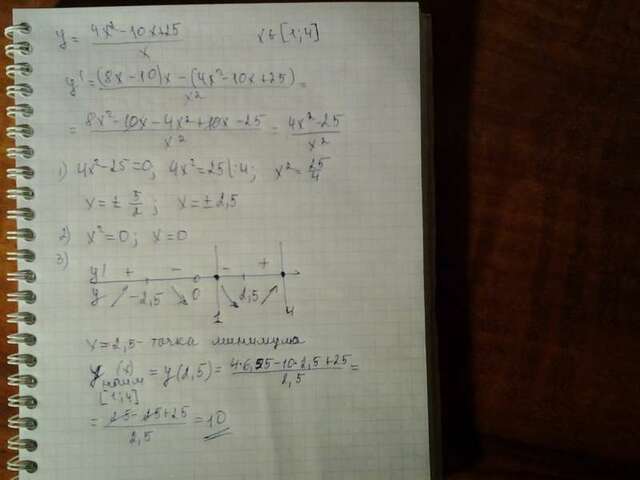 y = (4x² - 10x + 25) / x     x ∈ [1; 4]
y' = ((8x - 10)x - (4x² - 10x + 25)) / x² =
= (8x² - 10x - 4x² + 10x - 25) / x² = (4x² - 25) / x²
1) 4x² - 25 = 0; 4x² = 25 |:4; x² = 25/4
x = ± 5/2; x = ± 2,5
2) x² = 0; x = 0
3)
y' + - - +
y ↗ -2,5 ↘ 0 ↘ 2,5 ↗
1 4
x = 2,5 - точка минимума
y наим (x) = y(2,5) = (4·6,25 - 10·2,5 + 25) / 2,5 =
[1; 4]
= (25 - 25 + 25) / 2,5 = 10